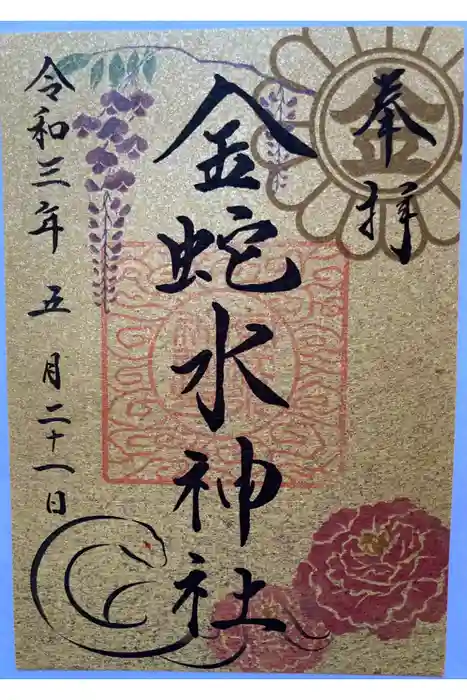 奉拝
金
金蛇水神社
令和三年五月二十一日